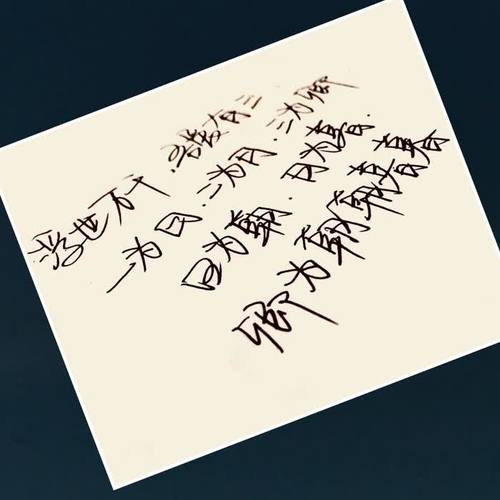 浮世万千.吾爱有三
一为日.二为月.三为卿
日为朝.月为暮.
卿为朝朝暮暮